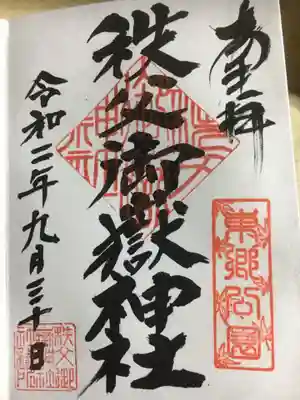 奉拝
東郷公園
秩父御嶽神社
令和二年九月三十日